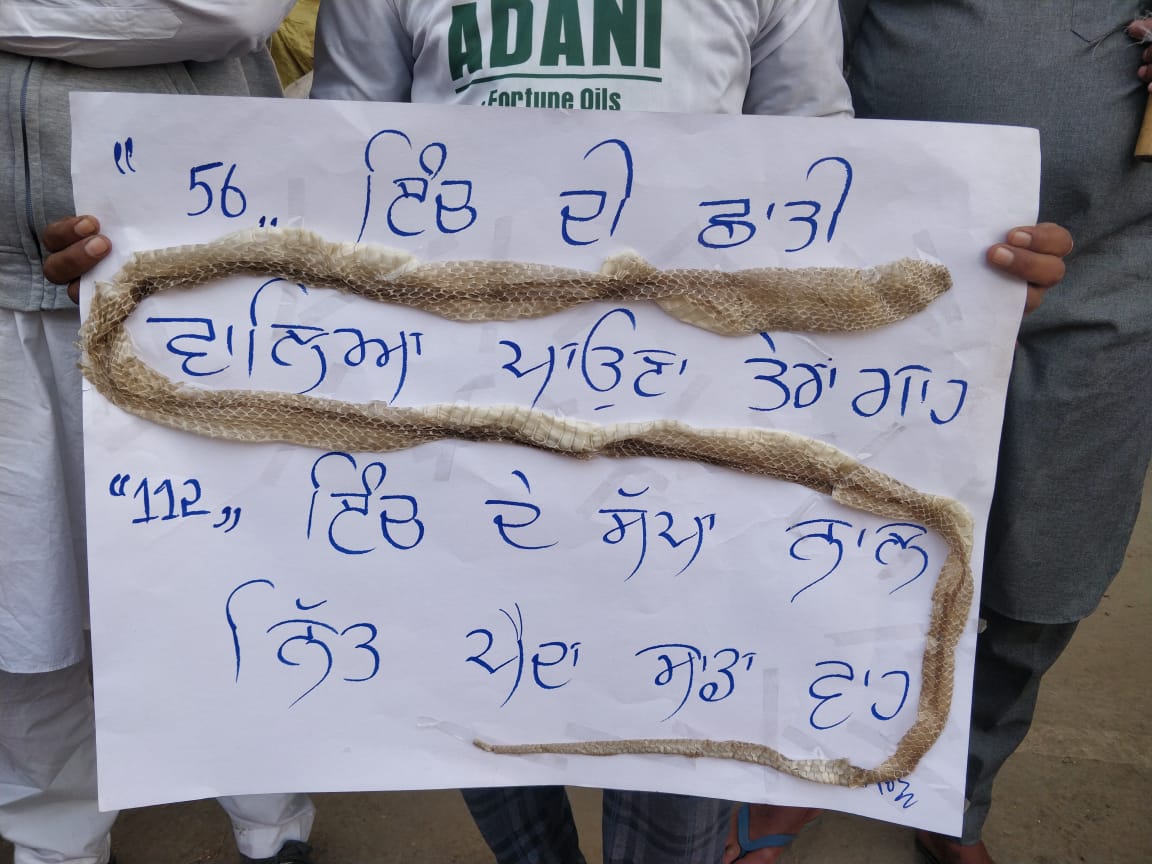 ADANI
Fortune Oils
" 56 ,, ਇੰਚ ਦੀ ਛਾਤੀ
ਵਾਲਿਆ ਪਾਉਣਾ ਤੇਰਾ ਗਾਹ
"112,, ਇੰਚ ਦੇ ਸੱਪਾ ਨਾਲ
ਨਿੱਤ ਪੈਦਾ ਸਾਡਾ ਵਾਹ